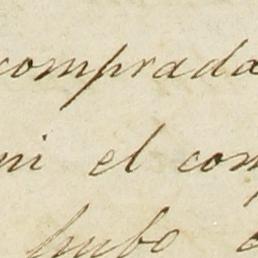 comprada
ni el com
hubo